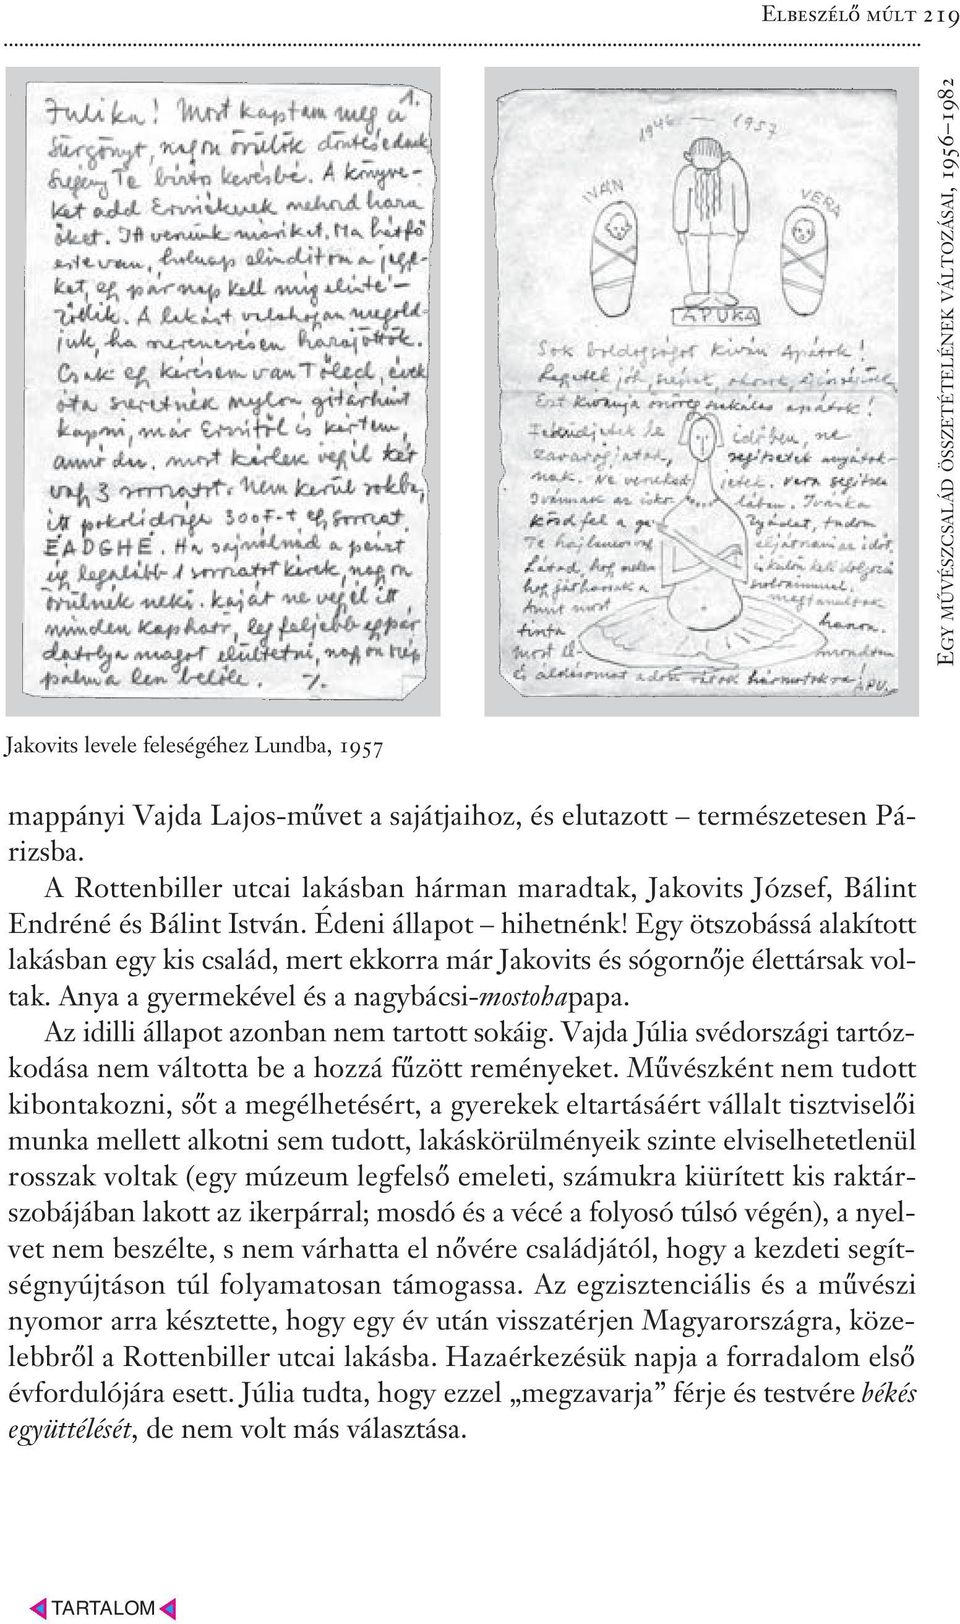 ELBESZÉLŐ MÚLT 219
Julika! Most kaptam meg a 1.
Sürgönyt, nagyon örülök döntésednek
Szegény Te biztos kevésbé. A könyve-
ket add Erviéknek mehord hara
őket. IA verünk máriket. Ma hétfő
este van, holnap elinditom a jegye-
ket, egy pár nap kell míg elinté-
ződik. A lakást valahogyan megold-
juk, ha szerencsésen hazajöttök.
Csak egy kérésem van Tőled, évek
óta szeretnék nylon gitárhúrt
kapni, már Ervitől is kértem,
annó du. most kérlek végyél két
vagy 3 sorozatot. Nem kerül sokba,
itt pokoli drága 300F-t egy sorozat
EADGHE. Ha sajnálnád a pénzt
úgy legalább 1 sorozatot kérek, nagyon
örülnék neki. Kaját ne vegyél itt
minden kapható, legfeljebb egy pár
datolya magot elültetni, nagyon szép
pálma len belőle. %.
1946 – 1957
IVÁN
VERA
APUKA
Sok boldogságot kíván Apátok!
Legyetek jók, szépek, okosok,
Ezt kívánja öszreg szakálas apátok!
időben, ne
zavarogjatok, segítsetek anyátok-
nak. Ne verekedjetek. Vera segítsen
Ivánnak az iskolában. Ivánka
tudom
Te hajlamos vagy eljátszani az időt,
Látod, hogy külön kell dolgozni
Amit most megtanultok
tinta
most el-
és áldásomat adom
APU.
EGY MŰVÉSZCSALÁD ÖSSZETÉTELÉNEK VÁLTOZÁSAI, 1956–1982
Jakovits levele feleségéhez Lundba, 1957
mappányi Vajda Lajos-művet a sajátjaihoz, és elutazott – természetesen Pá-
rizsba.
A Rottenbiller utcai lakásban hárman maradtak, Jakovits József, Bálint
Endréné és Bálint István. Édeni állapot – hihetnénk! Egy ötszobássá alakított
lakásban egy kis család, mert ekkorra már Jakovits és sógornője élettársak vol-
tak. Anya a gyermekével és a nagybácsi-mostohapapa.
Az idilli állapot azonban nem tartott sokáig. Vajda Júlia svédországi tartóz-
kodása nem váltotta be a hozzá fűzött reményeket. Művészként nem tudott
kibontakozni, sőt a megélhetésért, a gyerekek eltartásáért vállalt tisztviselői
munka mellett alkotni sem tudott, lakáskörülményeik szinte elviselhetetlenül
rosszak voltak (egy múzeum legfelső emeleti, számukra kiürített kis raktár-
szobájában lakott az ikerpárral; mosdó és a vécé a folyosó túlsó végén), a nyel-
vet nem beszélte, s nem várhatta el nővére családjától, hogy a kezdeti segít-
ségnyújtáson túl folyamatosan támogassa. Az egzisztenciális és a művészi
nyomor arra késztette, hogy egy év után visszatérjen Magyarországra, köze-
lebbről a Rottenbiller utcai lakásba. Hazaérkezésük napja a forradalom első
évfordulójára esett. Júlia tudta, hogy ezzel „megzavarja” férje és testvére békés
együttélését, de nem volt más választása.
TARTALOM